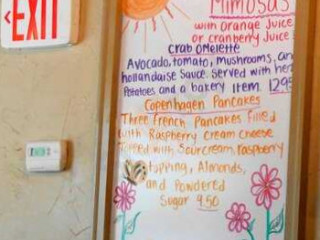 EXIT
Mimosas
with Orange Juice
or cranberry Juice
Crab Omelette
Avocado, tomato, mushrooms, and
hollandaise sauce. Served with
Potatoes and a bakery item. 12.95
Copenhagen Pancakes
Three French Pancakes filled
with Raspberry cream cheese
Topped with Sour cream, raspberry
topping, Almonds,
and Powdered
Sugar 9.50